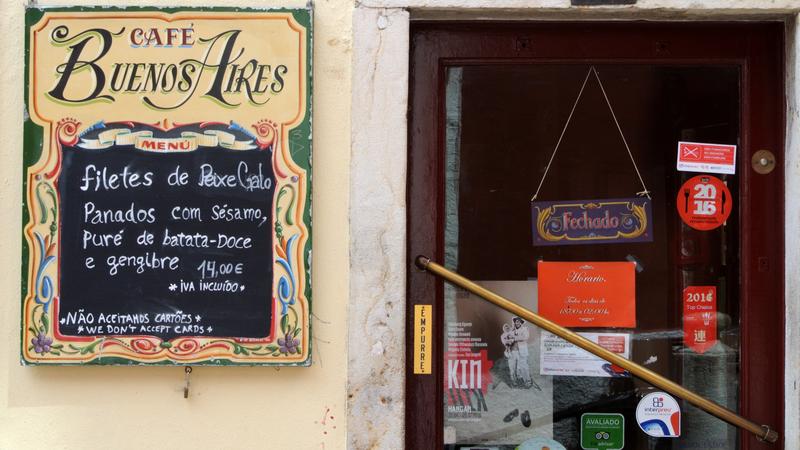 CAFÉ
BUENOS AIRES
MENÚ
filetes de Peixe Galo
Panados com sésamo,
Puré de batata-Doce
e gengibre 14,00€
*IVA INCLUÍDO*
*NÃO ACEITAMOS CARTÕES*
*WE DON'T ACCEPT CARDS*
Fechado
Horario.
Todos os dias de
18:00 às 02:00h.
EMPURRE
2016
2016
Top Choice
連
KIM
HANGAR
AVALIADO
interpreu